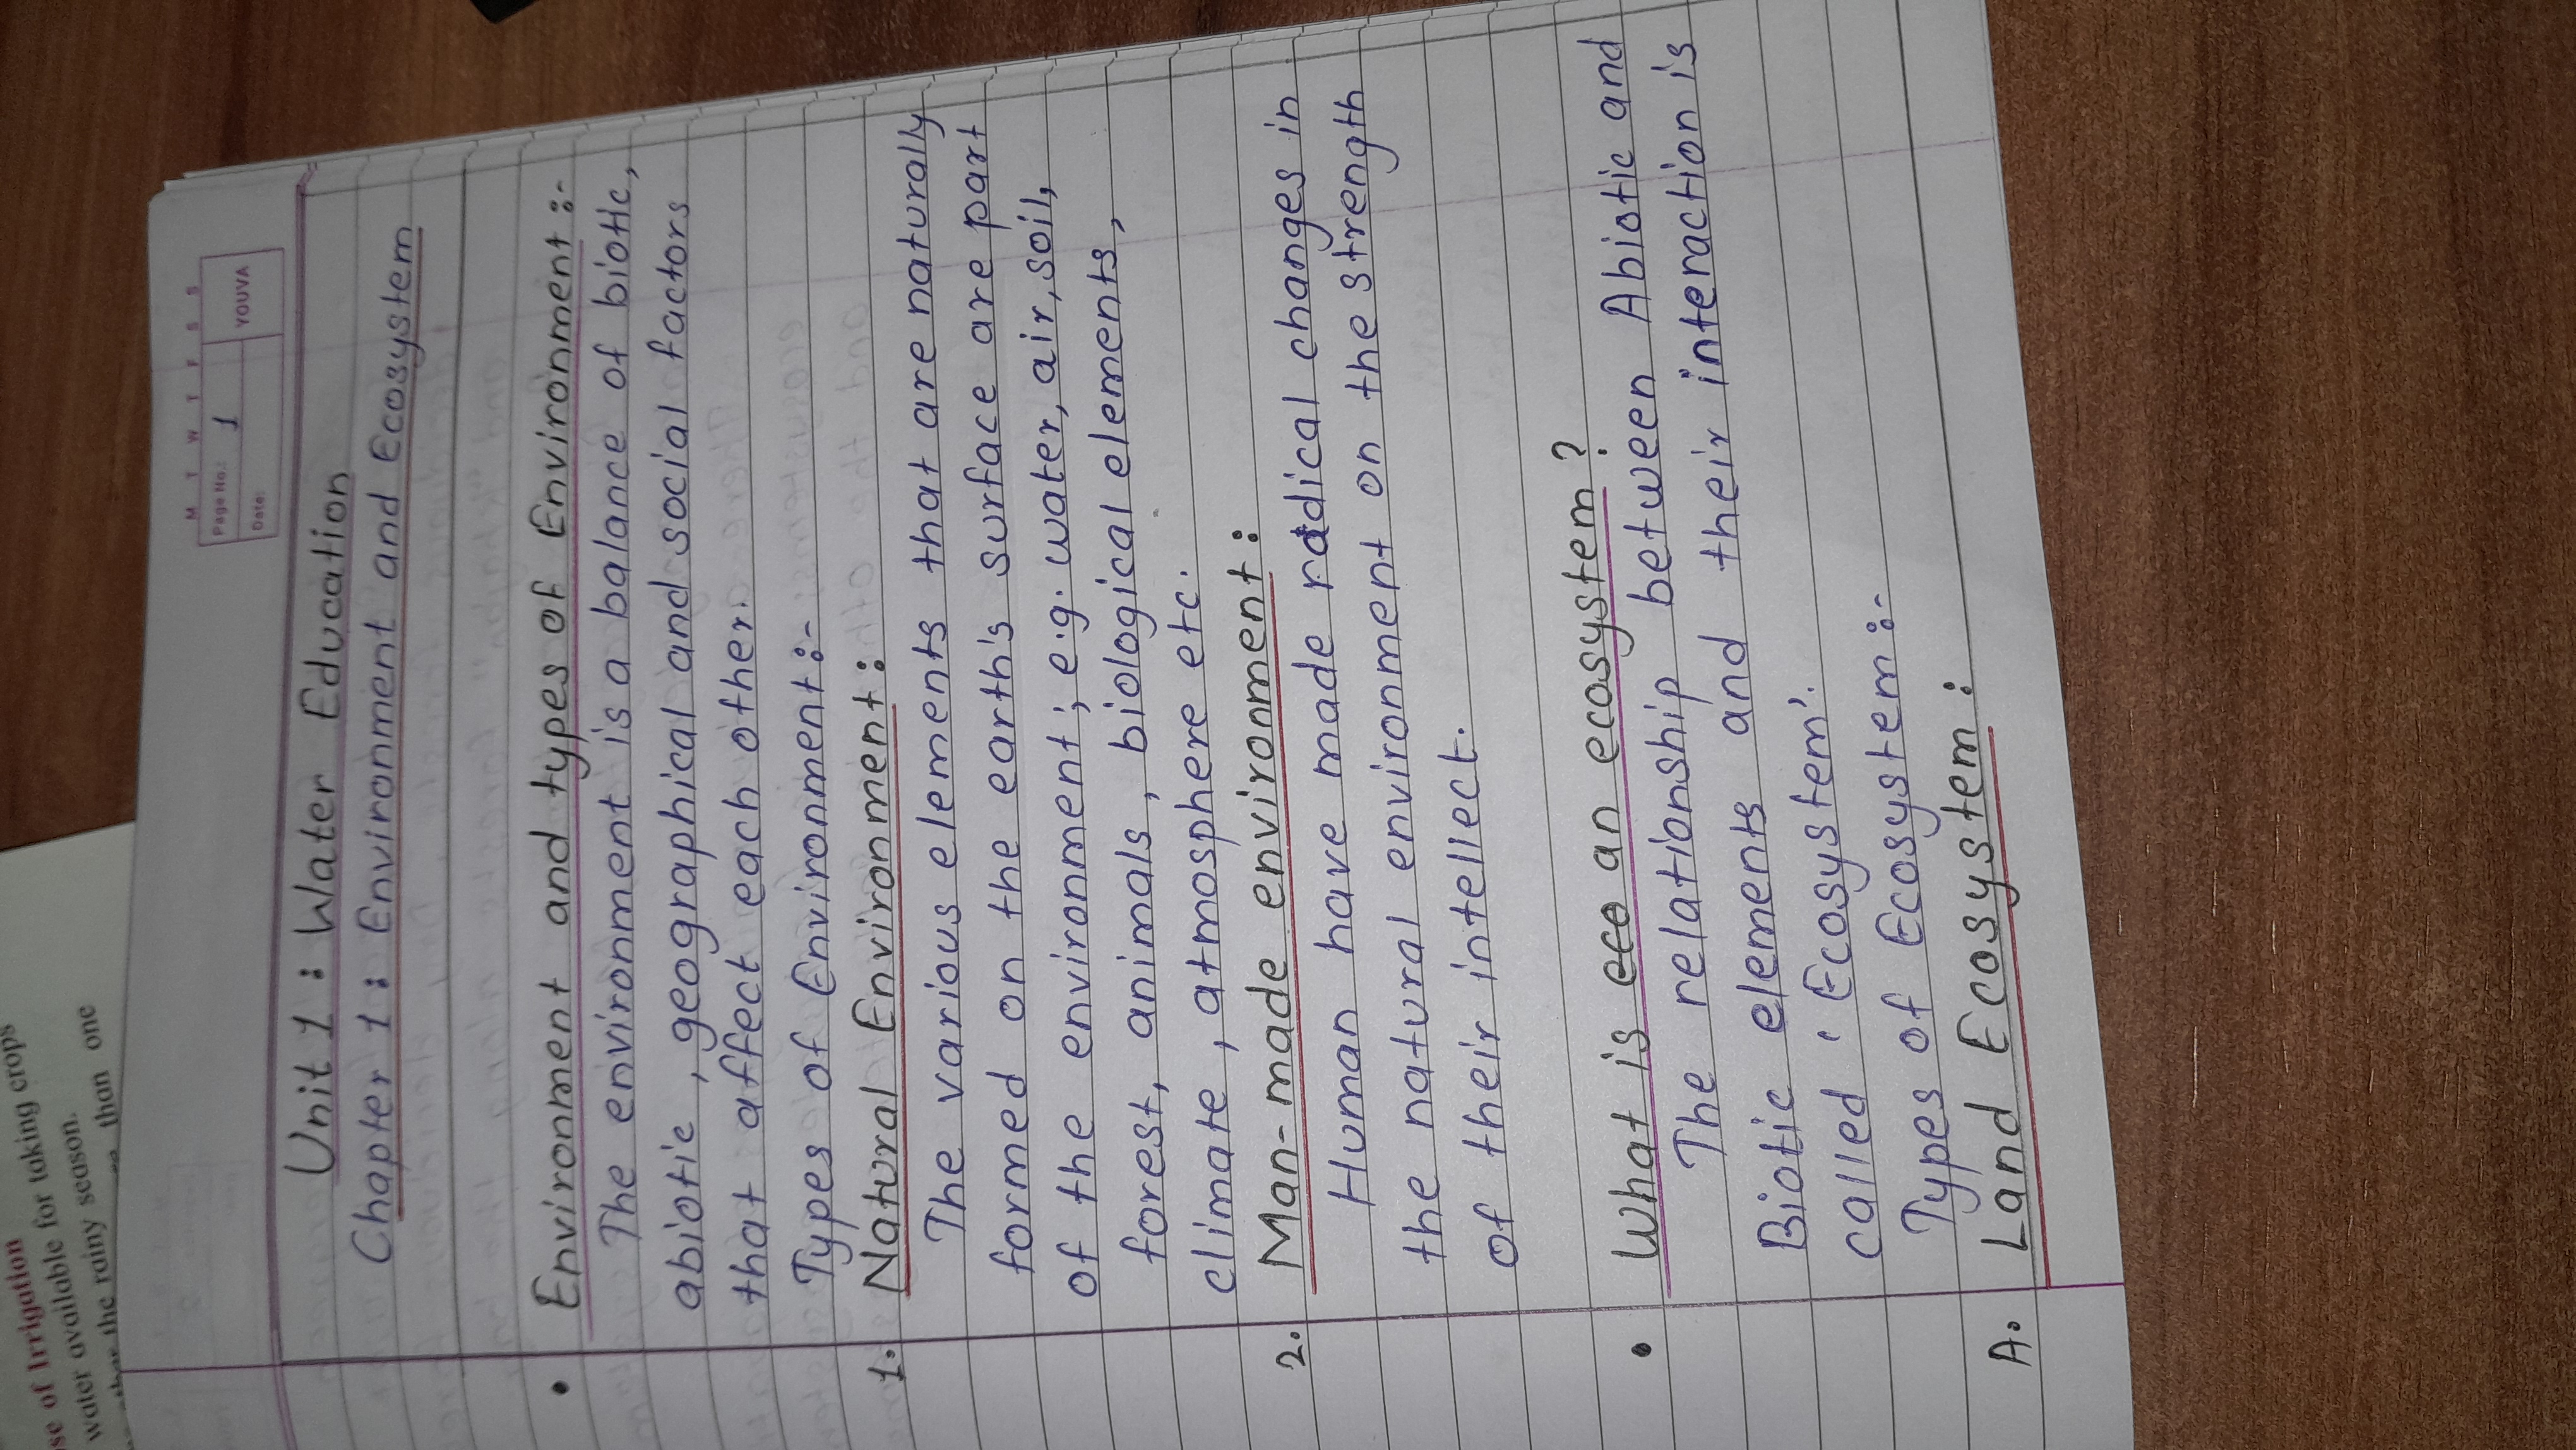 se of Irrigation
water available for taking crops
the rainy season.
than one
M T W T F S S
Page No.: 1
YOUVA
Date:
Unit 1 : Water Education
Chapter 1 : Environment and Ecosystem
• Environment and types of Environment :-
The environment is a balance of biotic,
abiotic , geographical and social factors
that affect each other.
Types of Environment :-
1. Natural Environment :
The various elements that are naturally
formed on the earth's surface are part
of the environment ; e.g. water, air, soil,
forest, animals, biological elements,
climate , atmosphere etc.
2. Man-made environment :
Human have made radical changes in
the natural environment on the strength
of their intellect.
• What is eco an ecosystem ?
The relationship between Abiotic and
Biotic elements and their interaction is
called 'Ecosystem'.
Types of Ecosystem :-
A. Land Ecosystem :